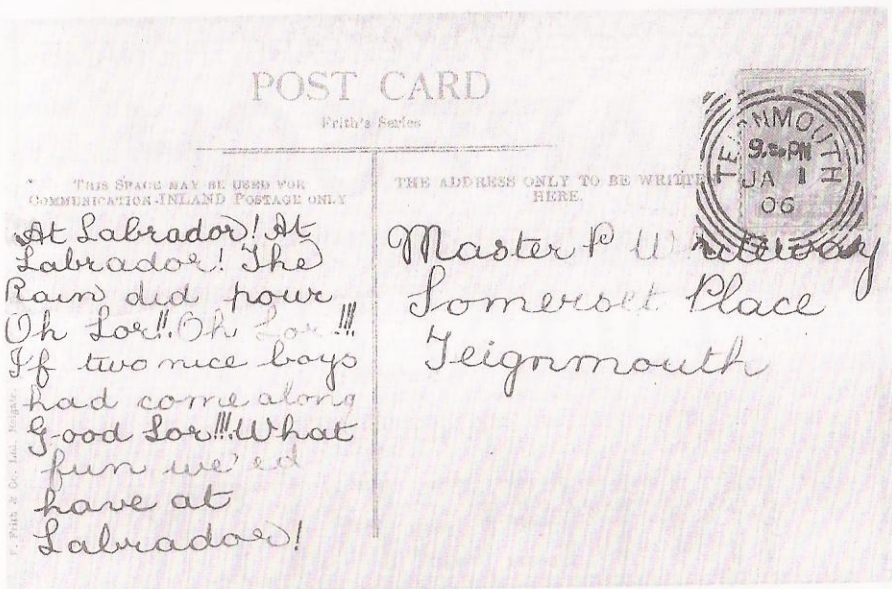 POST CARD
Frith's Series
THIS SPACE MAY BE USED FOR
COMMUNICATION-INLAND POSTAGE ONLY
THE ADDRESS ONLY TO BE WRITTEN
HERE.
TEIGNMOUTH
PM
JA 1
06
At Labrador! At
Labrador! The
Rain did pour
Oh Lor!!! Oh Lor!!!
If two nice boys
had come along
Good Lor!!!. What
fun we'ed
have at
Labrador!
Master P
Somerset Place
Teignmouth
F. Frith & Co. Ltd. Reigate.